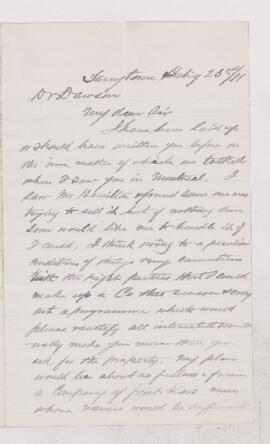 Dr Dawson
My dear Sir
I have been laid up
or should have written you before on
the iron matter of which we talked
when I saw you in Montreal, I
saw Mr Hamilton
trying to sell it, but if nothing done
I would like me to handle it if
I could, I think owing to a peculiar
condition of things & my connections
with the right parties that I could
make up a Co this season & carry
out a programme which would
please & satisfy all interests
make you more than you
ask for the property. My plan
would be about as follows - form
a Company of first class men
whose names would be sufficient